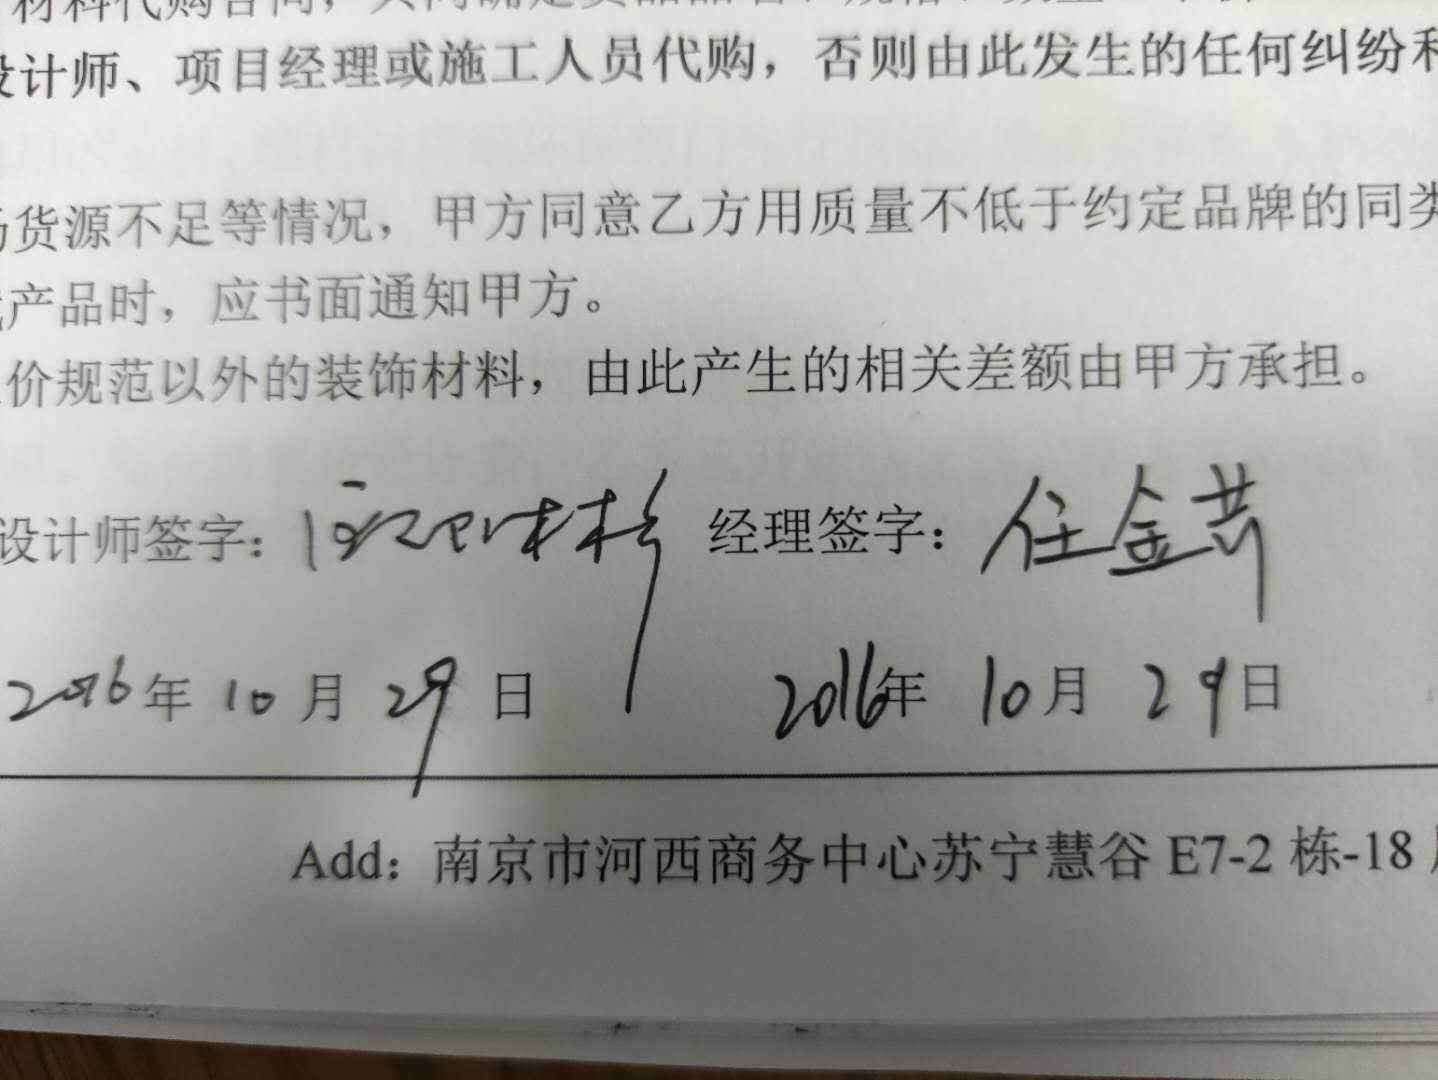 材料代购合同，共同确定
设计师、项目经理或施工人员代购，否则由此发生的任何纠纷和
货源不足等情况，甲方同意乙方用质量不低于约定品牌的同类
产品时，应书面通知甲方。
价规范以外的装饰材料，由此产生的相关差额由甲方承担。
设计师签字： 经理签字：任金
2016年 10 月 29 日 2016年 10月 29日
Add：南京市河西商务中心苏宁慧谷 E7-2 栋-18